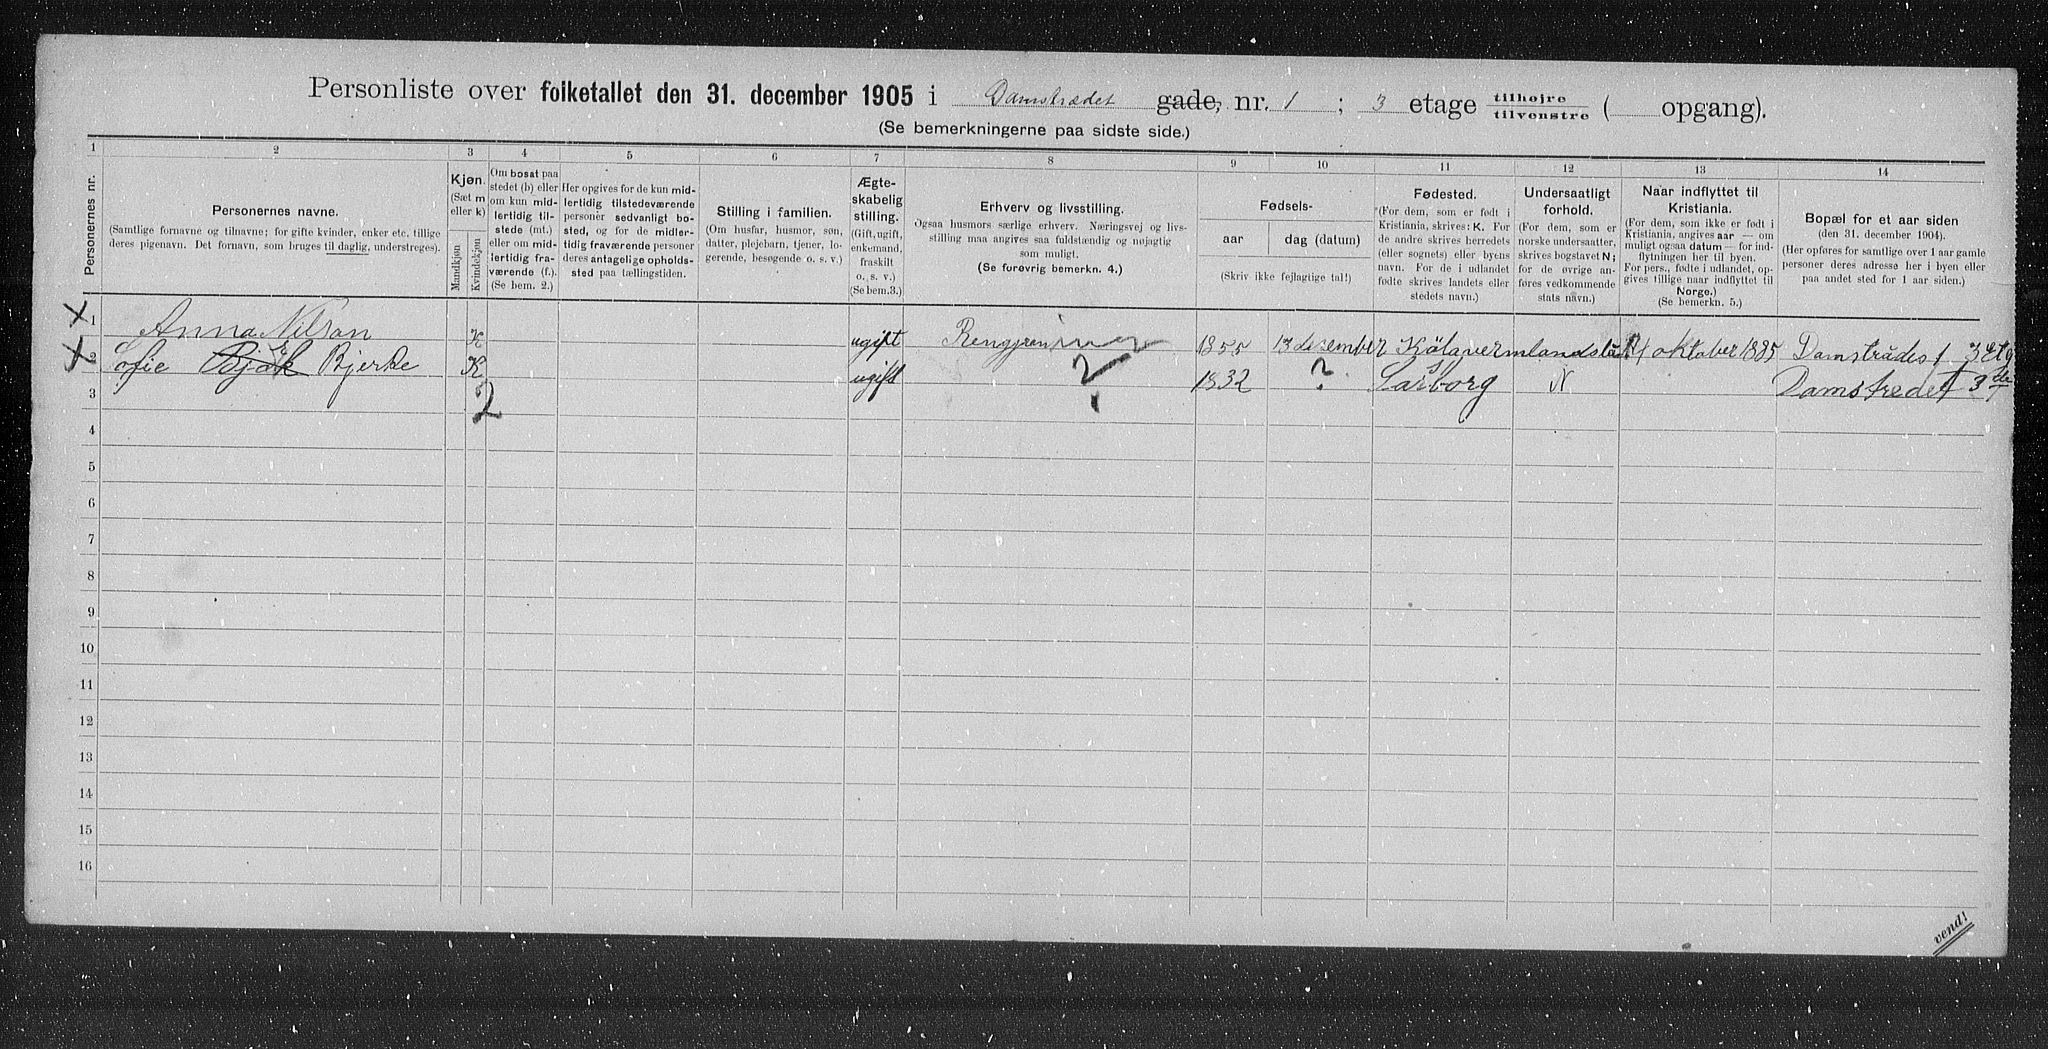 Personliste over folketallet den 31. december 1905 i Damstrædet gade, nr. 1 ; 3 etage tilhøjre tilvenstre ( opgang).
(Se bemerkningerne paa sidste side.)
1 2 3 4 5 6 7 8 9 10 11 12 13 14
Personernes nr.
Personernes navne.
(Samtlige fornavne og tilnavne; for gifte kvinder, enker etc. tillige
deres pigenavn. Det fornavn, som bruges til daglig, understreges).
Kjøn.
(Sæt m
eller k)
Mandkjøn
Kvindekjøn
Om bosat paa
stedet (b) eller
om kun mid-
lertidig til-
stede (mt.)
eller om mid-
lertidig fra-
værende (f.).
(Se bem. 2.)
Her opgives for de kun mid-
lertidig tilstedeværende
personer sedvanligt bo-
sted, og for de midler-
tidig fraværende personer
deres antagelige opholds-
sted paa tællingstiden.
Stilling i familien.
(Om husfar, husmor, søn,
datter, plejebarn, tjener, lo-
gerende, besøgende o. s. v.)
Ægte-
skabelig
stilling.
(Gift, ugift,
enkemand,
fraskilt
o. s. v.)
(Se bem.3.)
Erhverv og livsstilling.
Ogsaa husmors særlige erhverv. Næringsvej og livs-
stilling maa angives saa fuldstændig og nøjagtig
som muligt.
(Se forøvrig bemerkn. 4.)
Fødsels-
aar
dag (datum)
(Skriv ikke fejlagtige tal!)
Fødested.
(For dem, som er født i
Kristiania, skrives: K. For
de andre skrives herredets
(eller sognets) eller byens
navn. For de i udlandet
fødte skrives landets eller
stedets navn.)
Undersaatligt
forhold.
(For dem, som er
norske undersaatter,
skrives bogstavet N;
for de øvrige an-
føres vedkommende
stats navn.)
Naar indflyttet til
Kristiania.
(For dem, som ikke er født i
Kristiania, angives aar — om
muligt ogsaa datum — for ind-
flytningen her til byen.
For pers., fødte i udlandet, op-
gives tillige naar indflyttet til
Norge.)
(Se bemerkn. 5.)
Bopæl for et aar siden
(den 31. december 1904).
(Her opføres for samtlige over 1 aar gamle
personer deres adresse her i byen eller
paa andet sted for 1 aar siden.)
X 1 Anna Nilson K ugift 1855 13 desember oktober 1885 Damstrædes 1 3 Etg
X 2 Sofie Bjerke K ugift ? 1832 ? Sarborg N Damstredet 3
3 2
4
5
6
7
8
9
10
11
12
13
14
15
16
vend!